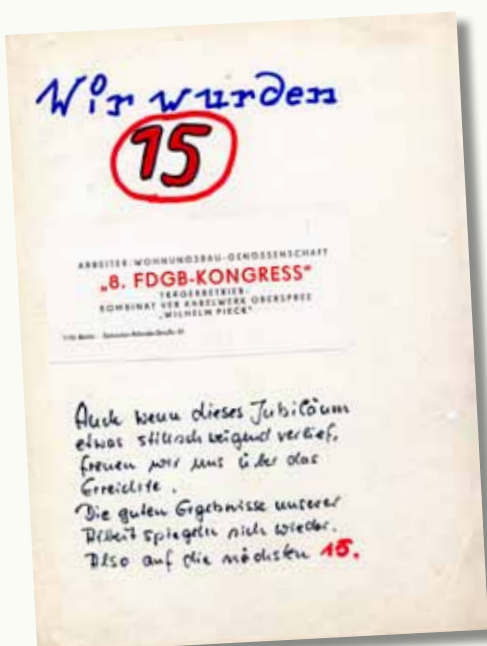 Wir wurden
15
ARBEITER-WOHNUNGSBAU-GENOSSENSCHAFT
„8. FDGB-KONGRESS“
TRÄGERBETRIEB:
KOMBINAT VEB KABELWERK OBERSPREE
„WILHELM PIECK“
Auch wenn dieses Jubiläum
etwas stillschweigend verlief,
freuen wir uns über das
Erreichte.
Die guten Ergebnisse unserer
Arbeit spiegeln sich wieder.
Also auf die nächsten 15.